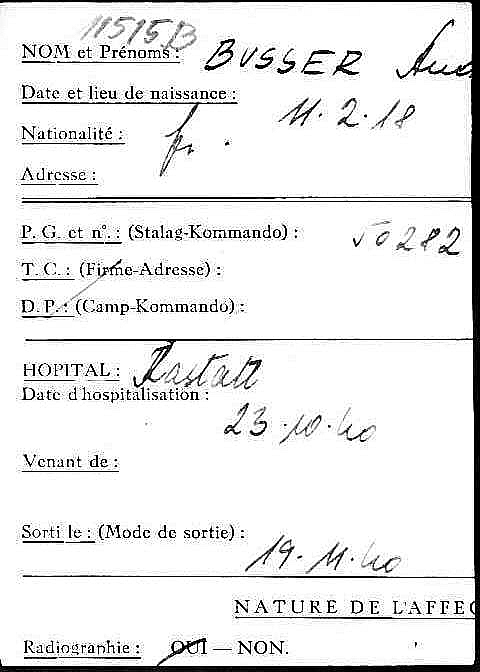 11515B
NOM et Prénoms : BUSSER
Date et lieu de naissance :
11.2.18
Nationalité : fr.
Adresse :
P. G. et n°. : (Stalag-Kommando) : 50282
T. C. : (Firme-Adresse) :
D. P. : (Camp-Kommando) :
HOPITAL : Rastatt
Date d'hospitalisation :
23.10.40
Venant de :
Sorti le : (Mode de sortie) :
19.11.40
NATURE DE L'AFFEC
Radiographie : OUI — NON.